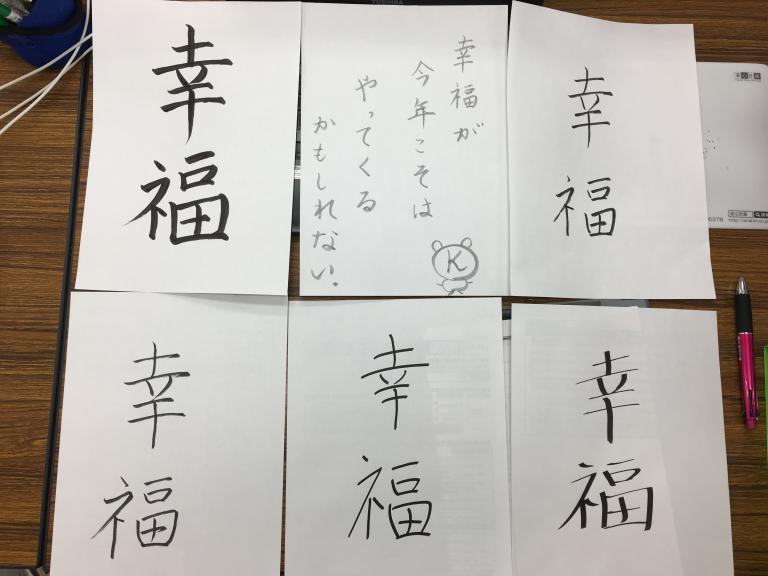 TOSHIBA
幸福
幸福が
今年こそは
やってくる
かもしれない.
K
幸福
幸福
幸福
幸福